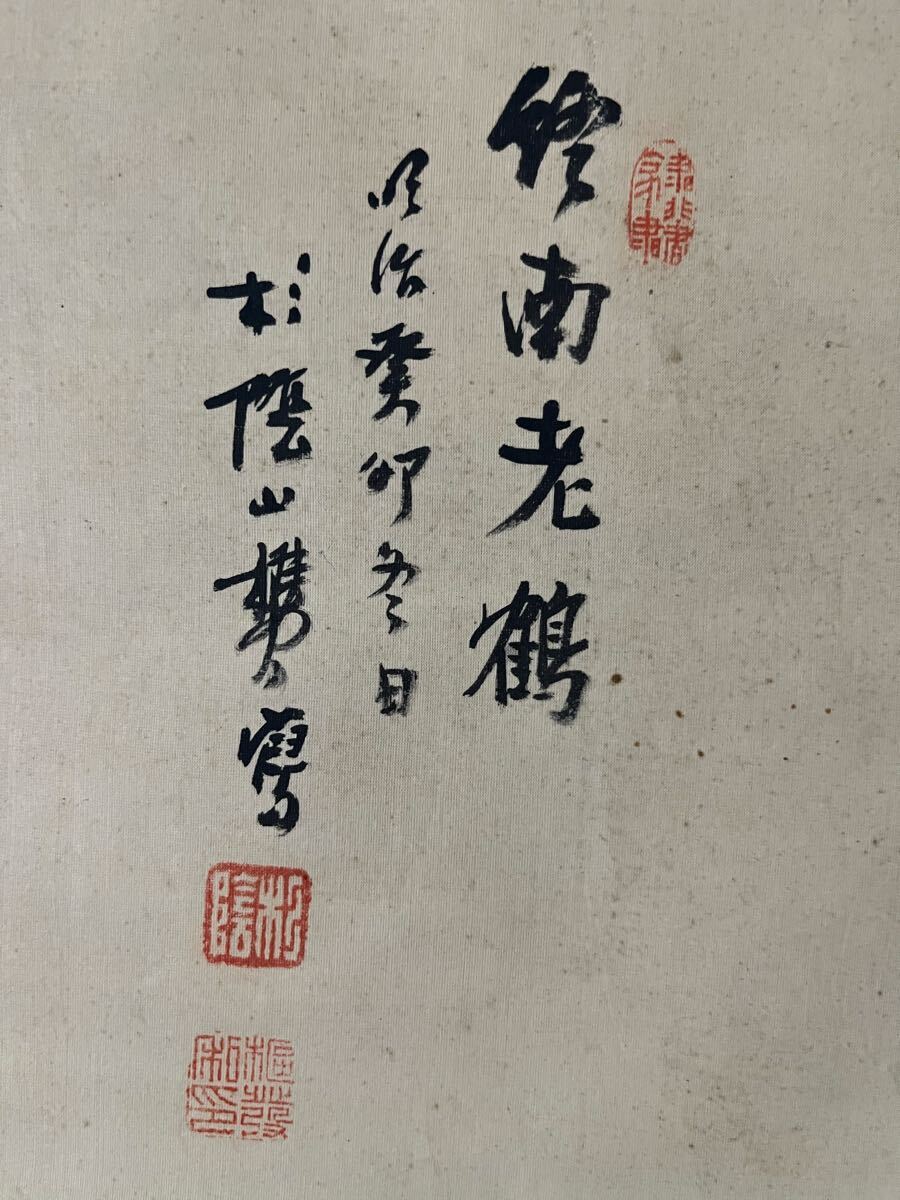 終南老鶴
明治癸卯冬日
杉陰山樵寫
杉陰